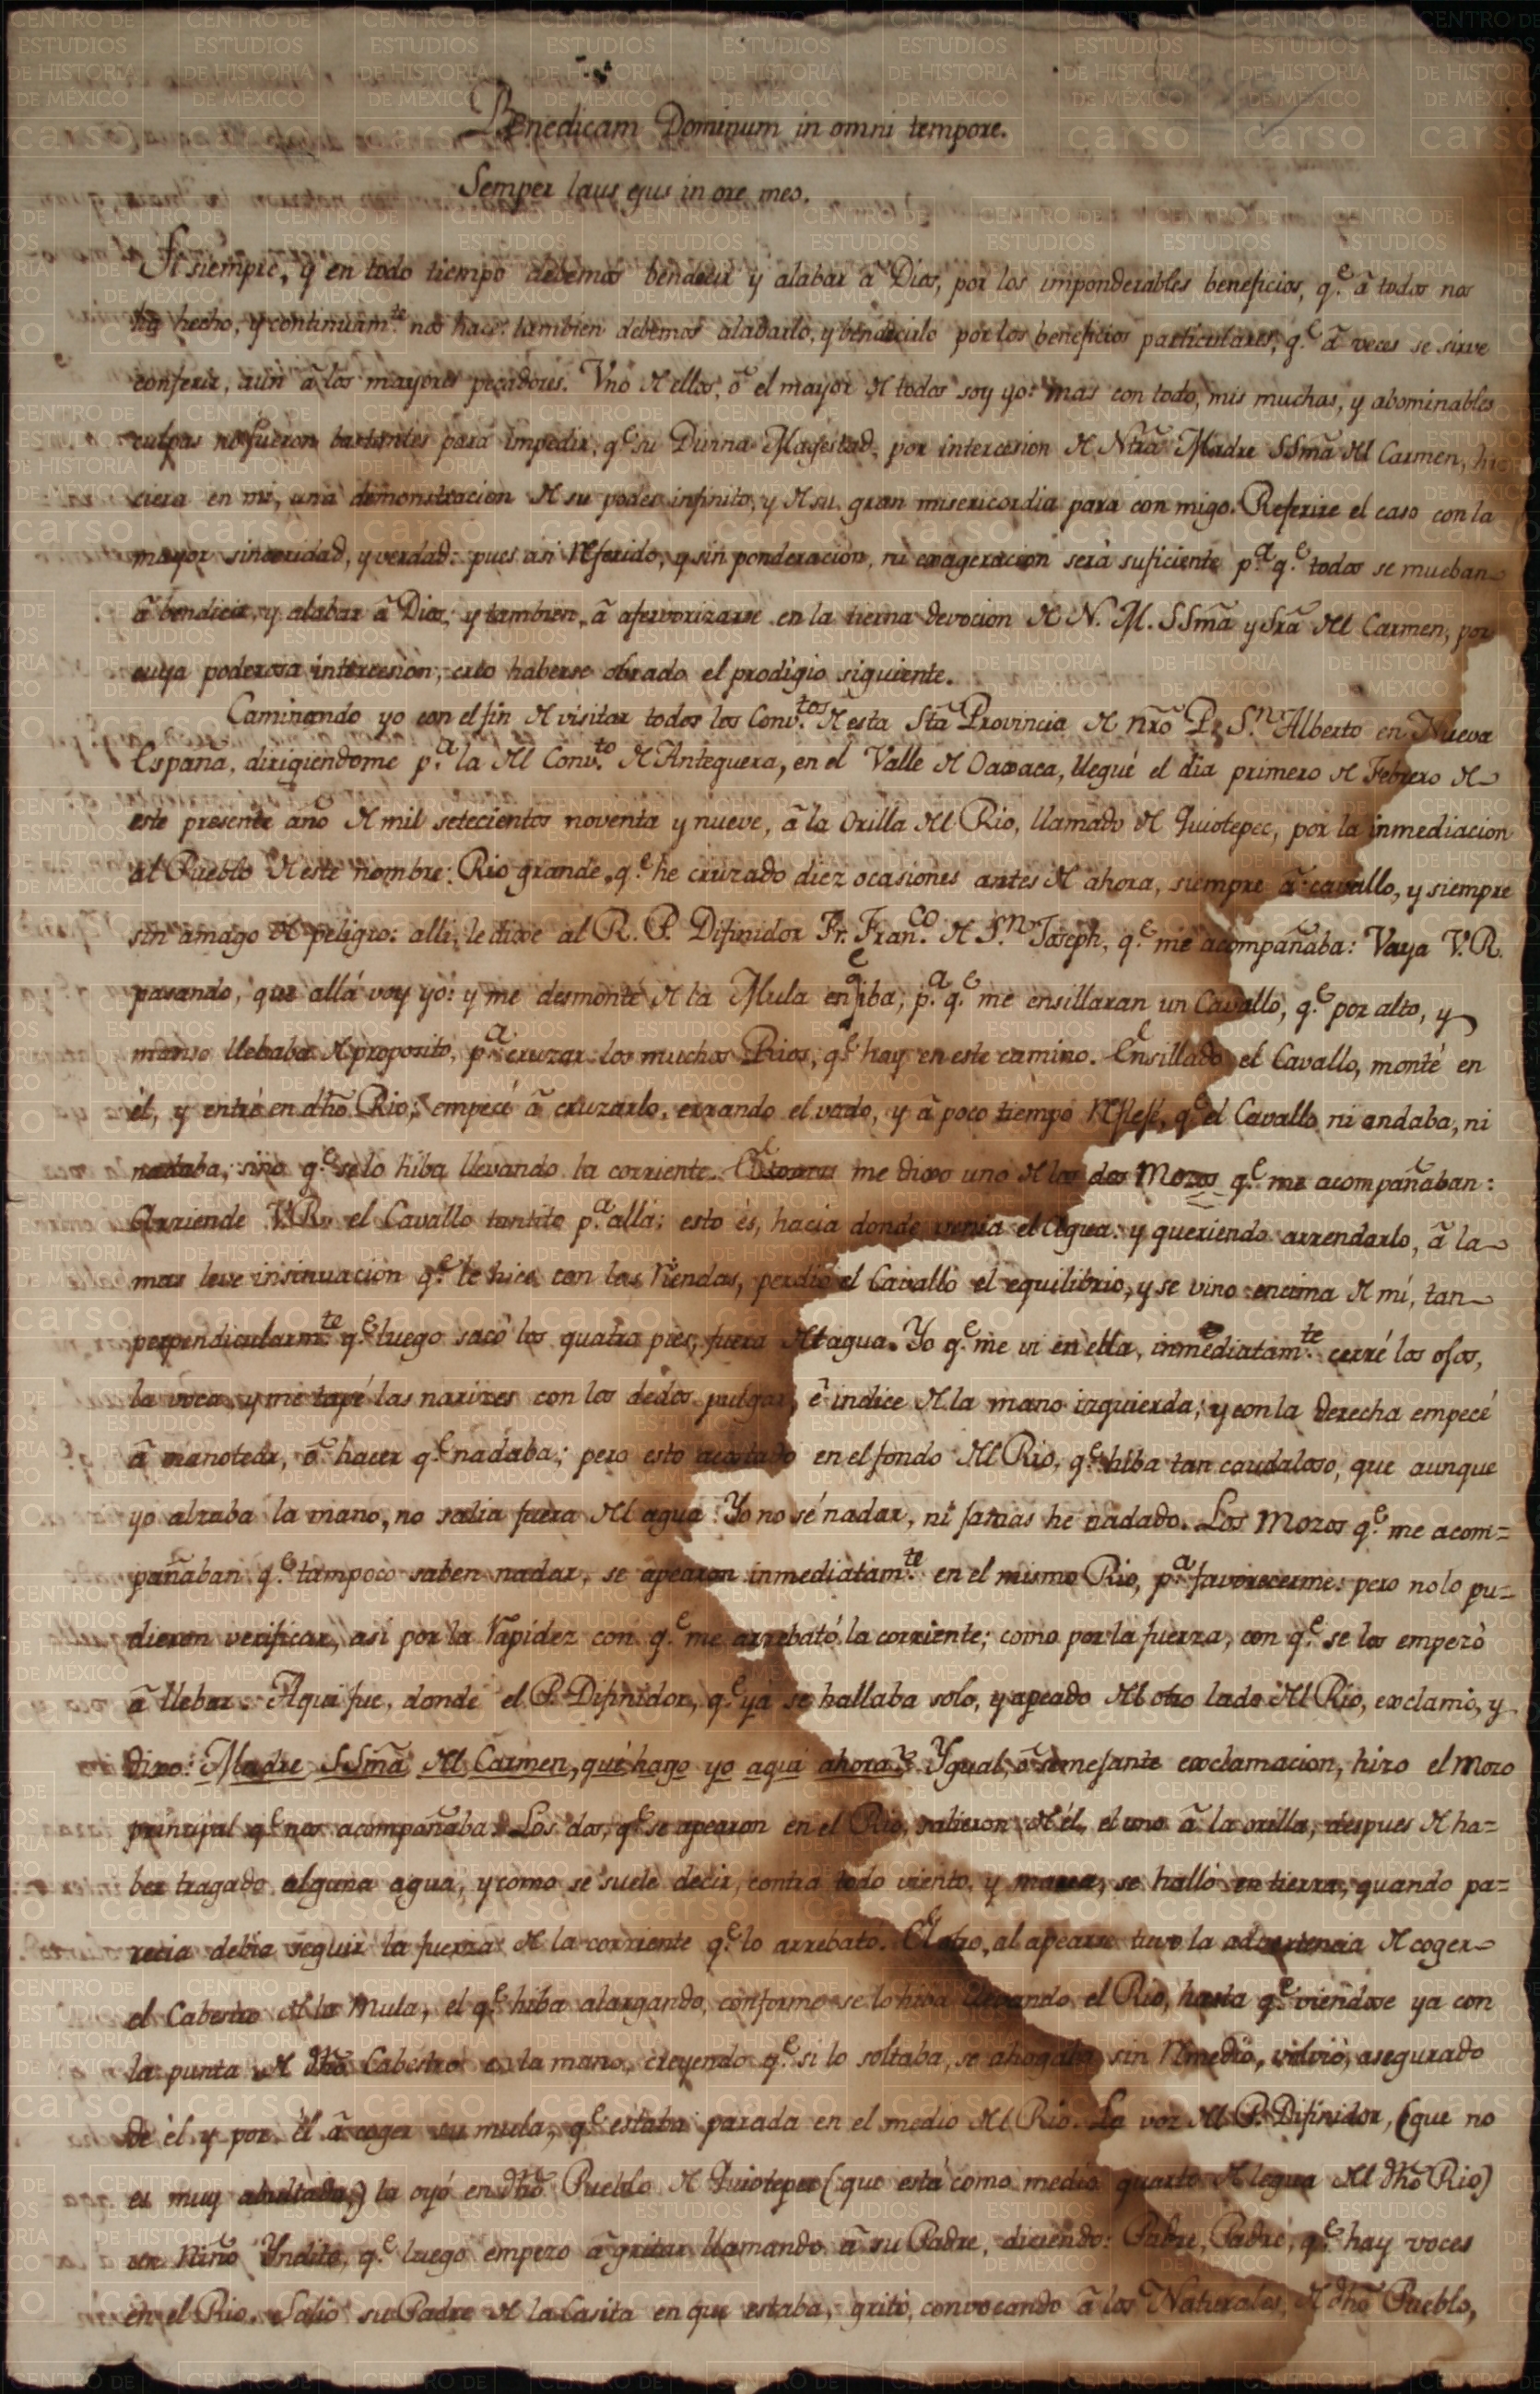 Benedicam Dominum in omni tempore.
Semper laus ejus in ore meo.
Si siempre, y en todo tiempo debemos bendecir y alabar â Dios, por los imponderables beneficios, q.e â todos nos
há hecho, y continuam.te nos hace: tambien debemos alabarlo, y bendecirlo por los beneficios particulares, q.e â veces se sirve
conferir, aun â los mayores pecadores. Vno de ellos, ô el mayor de todos soy yo: mas con todo, mis muchas, y abominables
culpas no fueron bastantes para impedir, q.e su Divina Magestad, por intercesion de Ntrâ Madre SSmâ del Carmen, hi
ciera en mi, una demonstracion de su poder infinito, y de su gran misericordia para con migo. Referire el caso con la
mayor sinceridad, y verdad: pues asi referido, y sin ponderacion, ni exageracion será suficiente p.a q.e todos se mueban
â bendecir, y alabar â Dios; y tambien, â afervorizarse en la tierna devocion de N. M. SSmâ y Srâ del Carmen, por
cuya poderosa intercesion, creo haberse obrado el prodigio siguiente.
Caminando yo con el fin de visitar todos los Conv.tos de esta Stâ Provincia de nrô P. S.n Alberto en Nueva
España, dirigiendome p.a la del Conv.to de Antequera, en el Valle de Oaxaca, llegué el dia primero de Febrero de
este presente año de mil setecientos noventa y nueve, â la Orilla del Rio, llamado de Quiotepec, por la inmediacion
al Pueblo de este nombre: Rio grande, q.e he cruzado diez ocasiones antes de ahora, siempre â cavallo, y siempre
sin amago de peligro: alli, le dixe al R. P. Difinidor Fr. Fran.co de S.n Joseph, q.e me acompañaba: Vaya V.R.
pasando, que allá voy yo: y me desmonté de la Mula en q.e iba, p.a q.e me ensillaran un Cavallo, q.e por alto, y
manso llebaba de proposito, p.a cruzar los muchos Rios, q.e hay en este camino. Ensillado el Cavallo, monté en
él, y entré en dhô Rio; empecé â cruzarlo, errando el vado, y â poco tiempo reflejé, q.e el Cavallo ni andaba, ni
nadaba, sino q.e se lo hiba llevando la corriente. Entonces me dixo uno de los dos Mozos q.e me acompañaban:
Arriende V.R. el Cavallo tantito p.a allá; esto és, hacia donde venia el Agua: y queriendo arrendarlo, â la
mas leve insinuacion q.e le hice con las riendas, perdió el Cavallo el equilibrio, y se vino encima de mí, tan
perpendicularm.te q.e luego sacó los quatro pies, fuera del agua. Yo q.e me vi en ella, inmediatam.te cerré los ojos,
la voca, y me tapé las narizes con los dedos pulgar, ê indice de la mano izquierda; y con la derecha empecé
â manotear, ô hacer q.e nadaba; pero esto acostado en el fondo del Rio, q.e hiba tan caudaloso, que aunque
yo alzaba la mano, no salia fuera del agua. Yo no sé nadar, ni jamás he nadado. Los Mozos q.e me acom=
pañaban q.e tampoco saben nadar, se apearon inmediatam.te en el mismo Rio, p.a favorecerme: pero no lo pu=
dieron verificar, así por la rapidez con q.e me arrebató la corriente; como por la fuerza, con q.e se los empezó
â llebar. Aqui fue, donde el P. Difinidor, q.e yá se hallaba solo, y apeado del otro lado del Rio, exclamó, y
dixo: Madre SSmâ del Carmen, qué hago yo aqui ahora? Ygual, ô semejante exclamacion, hizo el mozo
principal q.e nos acompañaba. Los dos, q.e se apearon en el Rio, salieron de él, el uno â la orilla, despues de ha=
ber tragado alguna agua, y como se suele decir, contra todo viento, y marea, se halló en tierra, quando pa=
recia debia seguir la fuerza de la corriente q.e lo arrebató. El otro, al apearse tuvo la advertencia de coger
el Cabestro de la Mula, el q.e hiba alargando, conforme se lo hiba llevando el Rio, hasta q.e viendose ya con
la punta de dhô Cabestro en la mano, creyendo q.e si lo soltaba, se ahogaba sin remedio, volvió, asegurado
de él y por él â coger su mula, q.e estaba parada en el medio del Rio. La voz del P. Difinidor, (que no
es muy abultada,) la oyó en dhô Pueblo de Quiotepec (que está como medio quarto de legua del dhô Rio)
un Niño Yndito, q.e luego empezo â gritar llamando â su Padre, diciendo: Padre, Padre, q.e hay voces
en el Rio. Salió su Padre de la Casita en que estaba, gritó, convocando â los Naturales de dhô Pueblo,